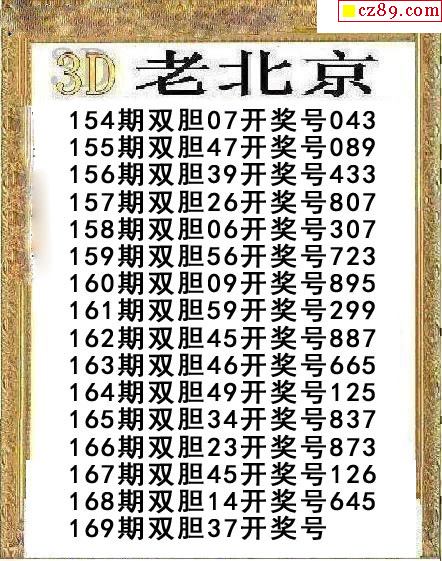 cz89.com
3D 老北京
154期双胆07开奖号043
155期双胆47开奖号089
156期双胆39开奖号433
157期双胆26开奖号807
158期双胆06开奖号307
159期双胆56开奖号723
160期双胆09开奖号895
161期双胆59开奖号299
162期双胆45开奖号887
163期双胆46开奖号665
164期双胆49开奖号125
165期双胆34开奖号837
166期双胆23开奖号873
167期双胆45开奖号126
168期双胆14开奖号645
169期双胆37开奖号